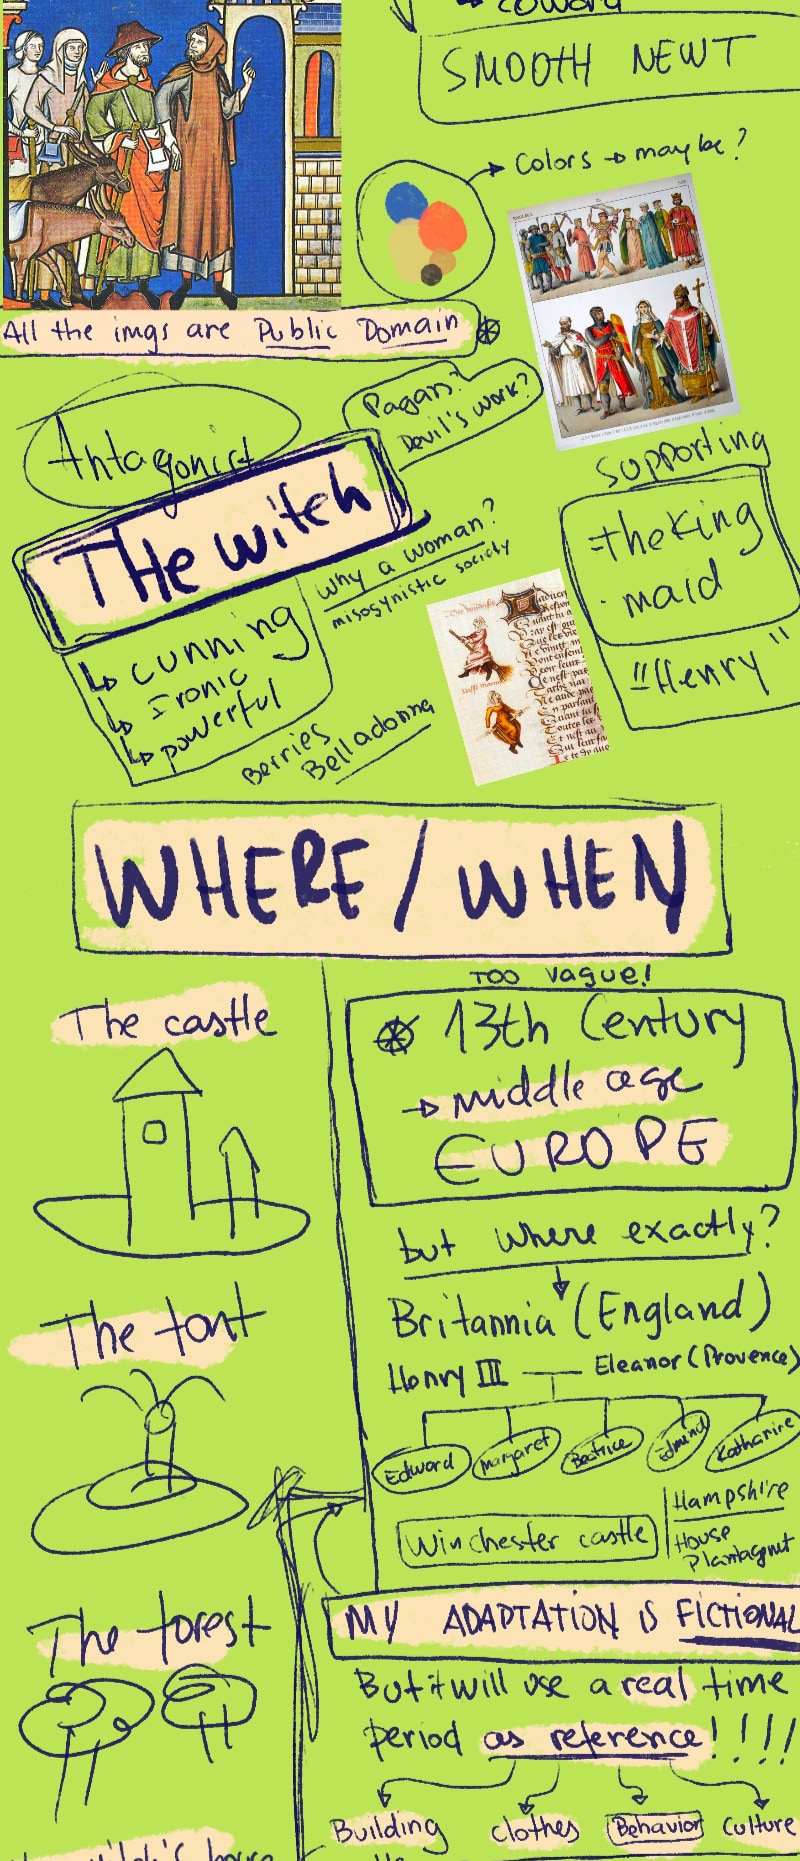 coward
SMOOTH NEWT
Colors → maybe?
All the imgs are Public Domain
Antagonist
Pagans?
Devil's work?
THe witch
Why a woman?
misogynistic society
cunning
Ironic
powerful
Berries
Belladonna
Supporting
the King
maid
"Henry"
WHERE / WHEN
The castle
Too vague!
13th Century
→ middle age
EUROPE
but where exactly?
Britannia (England)
Henry III
Eleanor (Provence)
Edward
Margaret
Beatrice
Edmund
Katharine
Winchester castle
Hampshire
House
Plantagent
The font
The forest
MY ADAPTATION IS FICTIONAL
But it will use a real time
period as reference!!!!
Building
clothes
Behavior
Culture
house